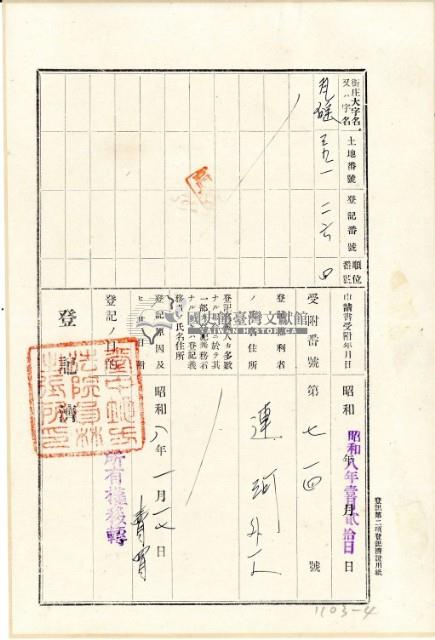 街庄大字名
又ハ字名
土地番號
登記番號
順位番號
三九一
二六
四
申請書受附年月日
昭和 年 月 日
昭和八年壹月貳拾日
受附番號
第七一四號
登記權利者
ノ 住所
連 河 外一人
登記 人カ多數
ナル 於テ其
一部 登記義務者
ナル ハ登記義
務 氏名住所
登記原因及
ヒ 日附
昭和八年一月一七日
賣買
登記ノ目的
所有權移轉
登記濟
臺中地方
法院員林
出張所印
國史館臺灣文獻館
TAIWAN HISTORICA
登記第二項登記濟證用紙
1103-4